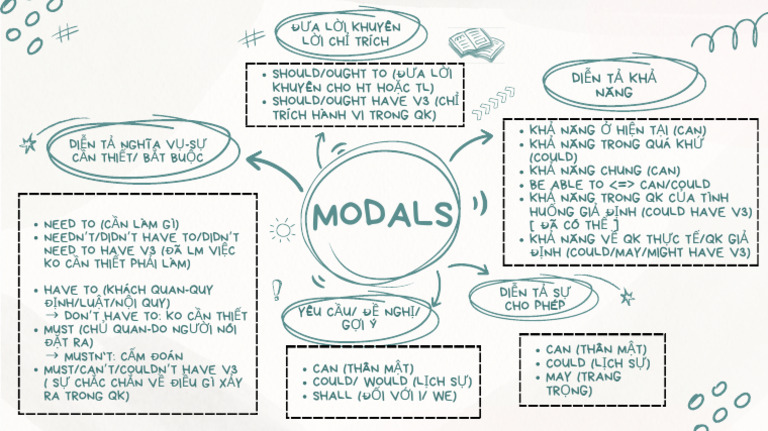 ĐƯA LỜI KHUYÊN
LỜI CHỈ TRÍCH
SHOULD/OUGHT TO (ĐƯA LỜI
KHUYÊN CHO HT HOẶC TL)
SHOULD/OUGHT HAVE V3 (CHỈ
TRÍCH HÀNH VI TRONG QK)
DIỄN TẢ KHẢ
NĂNG
KHẢ NĂNG Ở HIỆN TẠI (CAN)
KHẢ NĂNG TRONG QUÁ KHỨ
(COULD)
KHẢ NĂNG CHUNG (CAN)
BE ABLE TO <=> CAN/COULD
KHẢ NĂNG TRONG QK CỦA TÌNH
HUỐNG GIẢ ĐỊNH (COULD HAVE V3)
[ ĐÃ CÓ THỂ ]
KHẢ NĂNG VỀ QK THỰC TẾ/QK GIẢ
ĐỊNH (COULD/MAY/MIGHT HAVE V3)
DIỄN TẢ NGHĨA VỤ-SỰ
CẦN THIẾT/ BẮT BUỘC
NEED TO (CẦN LÀM GÌ)
NEEDN'T/DIDN'T HAVE TO/DIDN'T
NEED TO HAVE V3 (ĐÃ LM VIỆC
KO CẦN THIẾT PHẢI LÀM)
HAVE TO (KHÁCH QUAN-QUY
ĐỊNH/LUẬT/NỘI QUY)
→ DON'T HAVE TO: KO CẦN THIẾT
MUST (CHỦ QUAN-DO NGƯỜI NÓI
ĐẶT RA)
→ MUSTN'T: CẤM ĐOÁN
MUST/CAN'T/COULDN'T HAVE V3
( SỰ CHẮC CHẮN VỀ ĐIỀU GÌ XẢY
RA TRONG QK)
MODALS
YÊU CẦU/ ĐỀ NGHỊ/
GỢI Ý
CAN (THÂN MẬT)
COULD/ WOULD (LỊCH SỰ)
SHALL (ĐỐI VỚI I/ WE)
DIỄN TẢ SỰ
CHO PHÉP
CAN (THÂN MẬT)
COULD (LỊCH SỰ)
MAY (TRANG
TRỌNG)